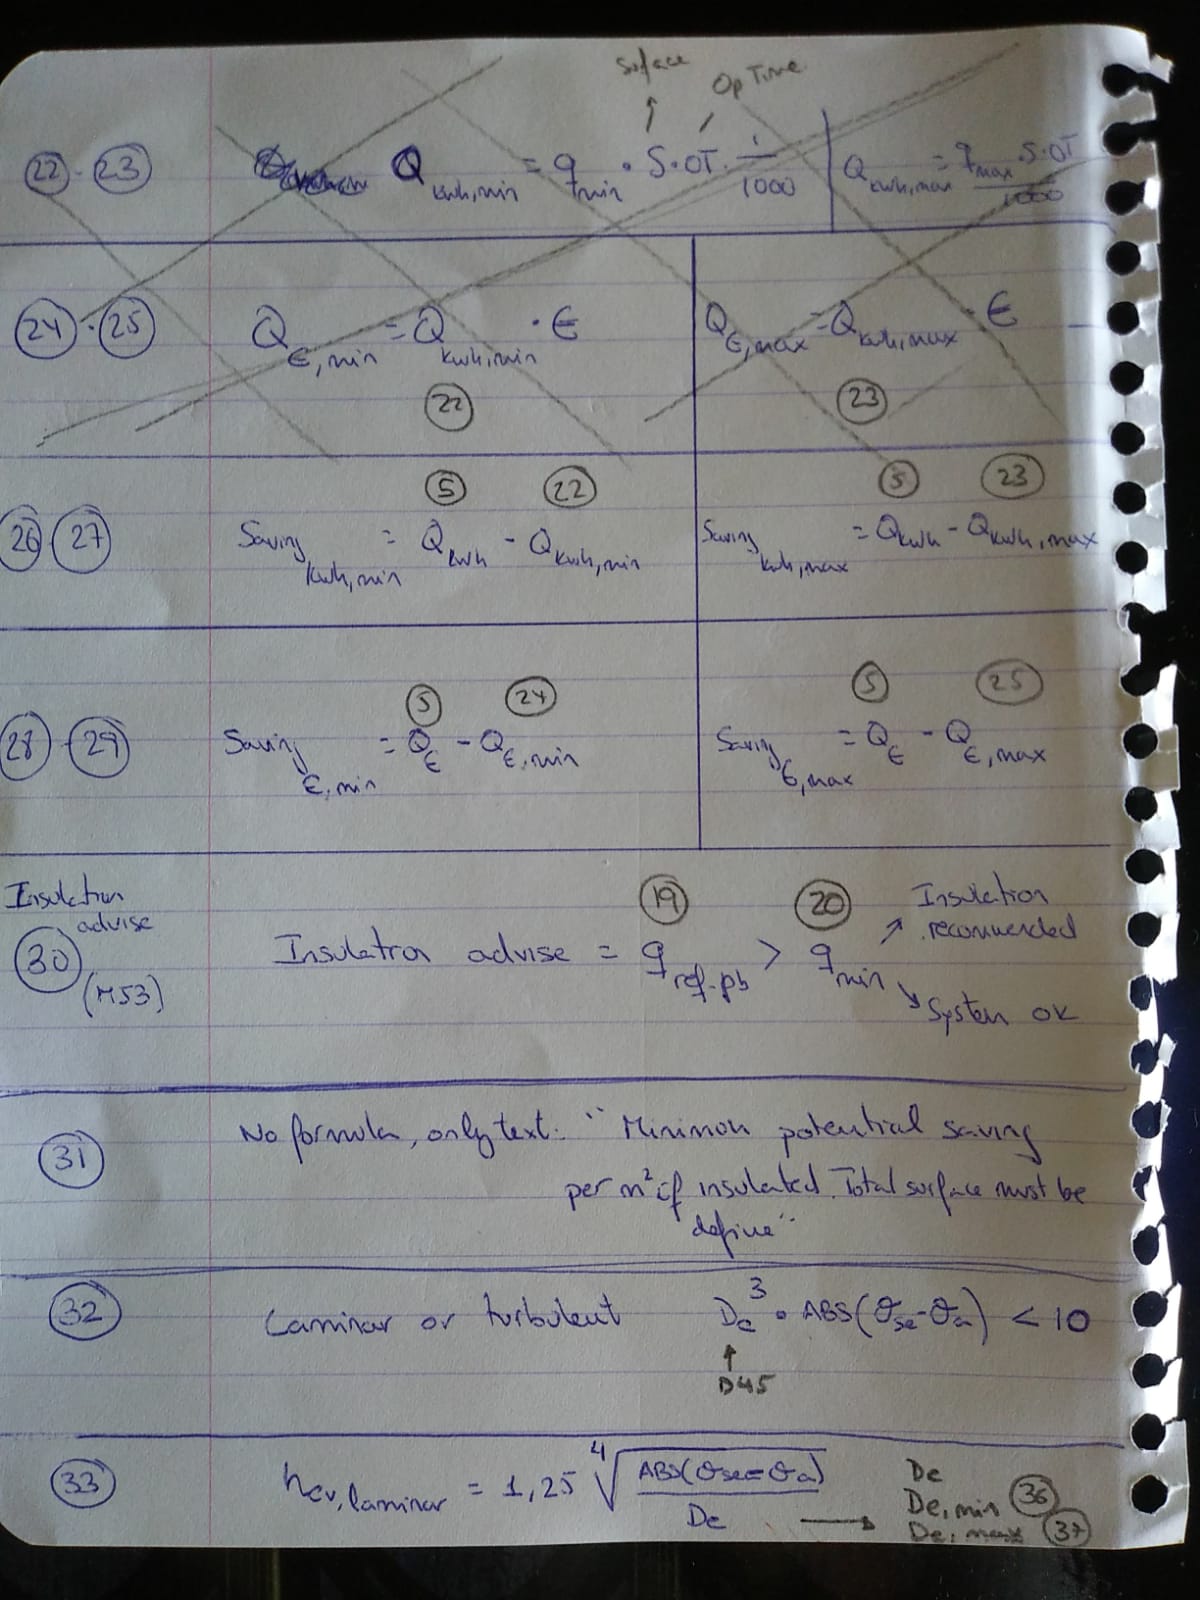 Surface
Op Time
22 - 23 Q kwh,min = q min · S · OT · 1/1000 | Q kwh,max = q max · S · OT / 1000
24 · 25 Q €,min = Q kwh,min · € | Q €,max = Q kwh,max · €
22 23
5 22 5 23
26 27 Saving kwh,min = Q kwh - Q kwh,min | Saving kwh,max = Q kwh - Q kwh,max
5 24 5 25
28 - 29 Saving €,min = Q € - Q €,min | Saving €,max = Q € - Q €,max
Insulation
advise
19 20 Insulation
recommended
30 Insulation advise = q ref-pb > q min
(M53)
System OK
31 No formula, only text: "Minimon potential saving
per m² if insulated. Total surface must be
define"
32 Laminar or turbulent De³ · ABS(θse - θa) < 10
D45
33 hcv,laminar = 1,25 ⁴√(ABS(θse - θa) / De) → De
De,min 36
De,max 37